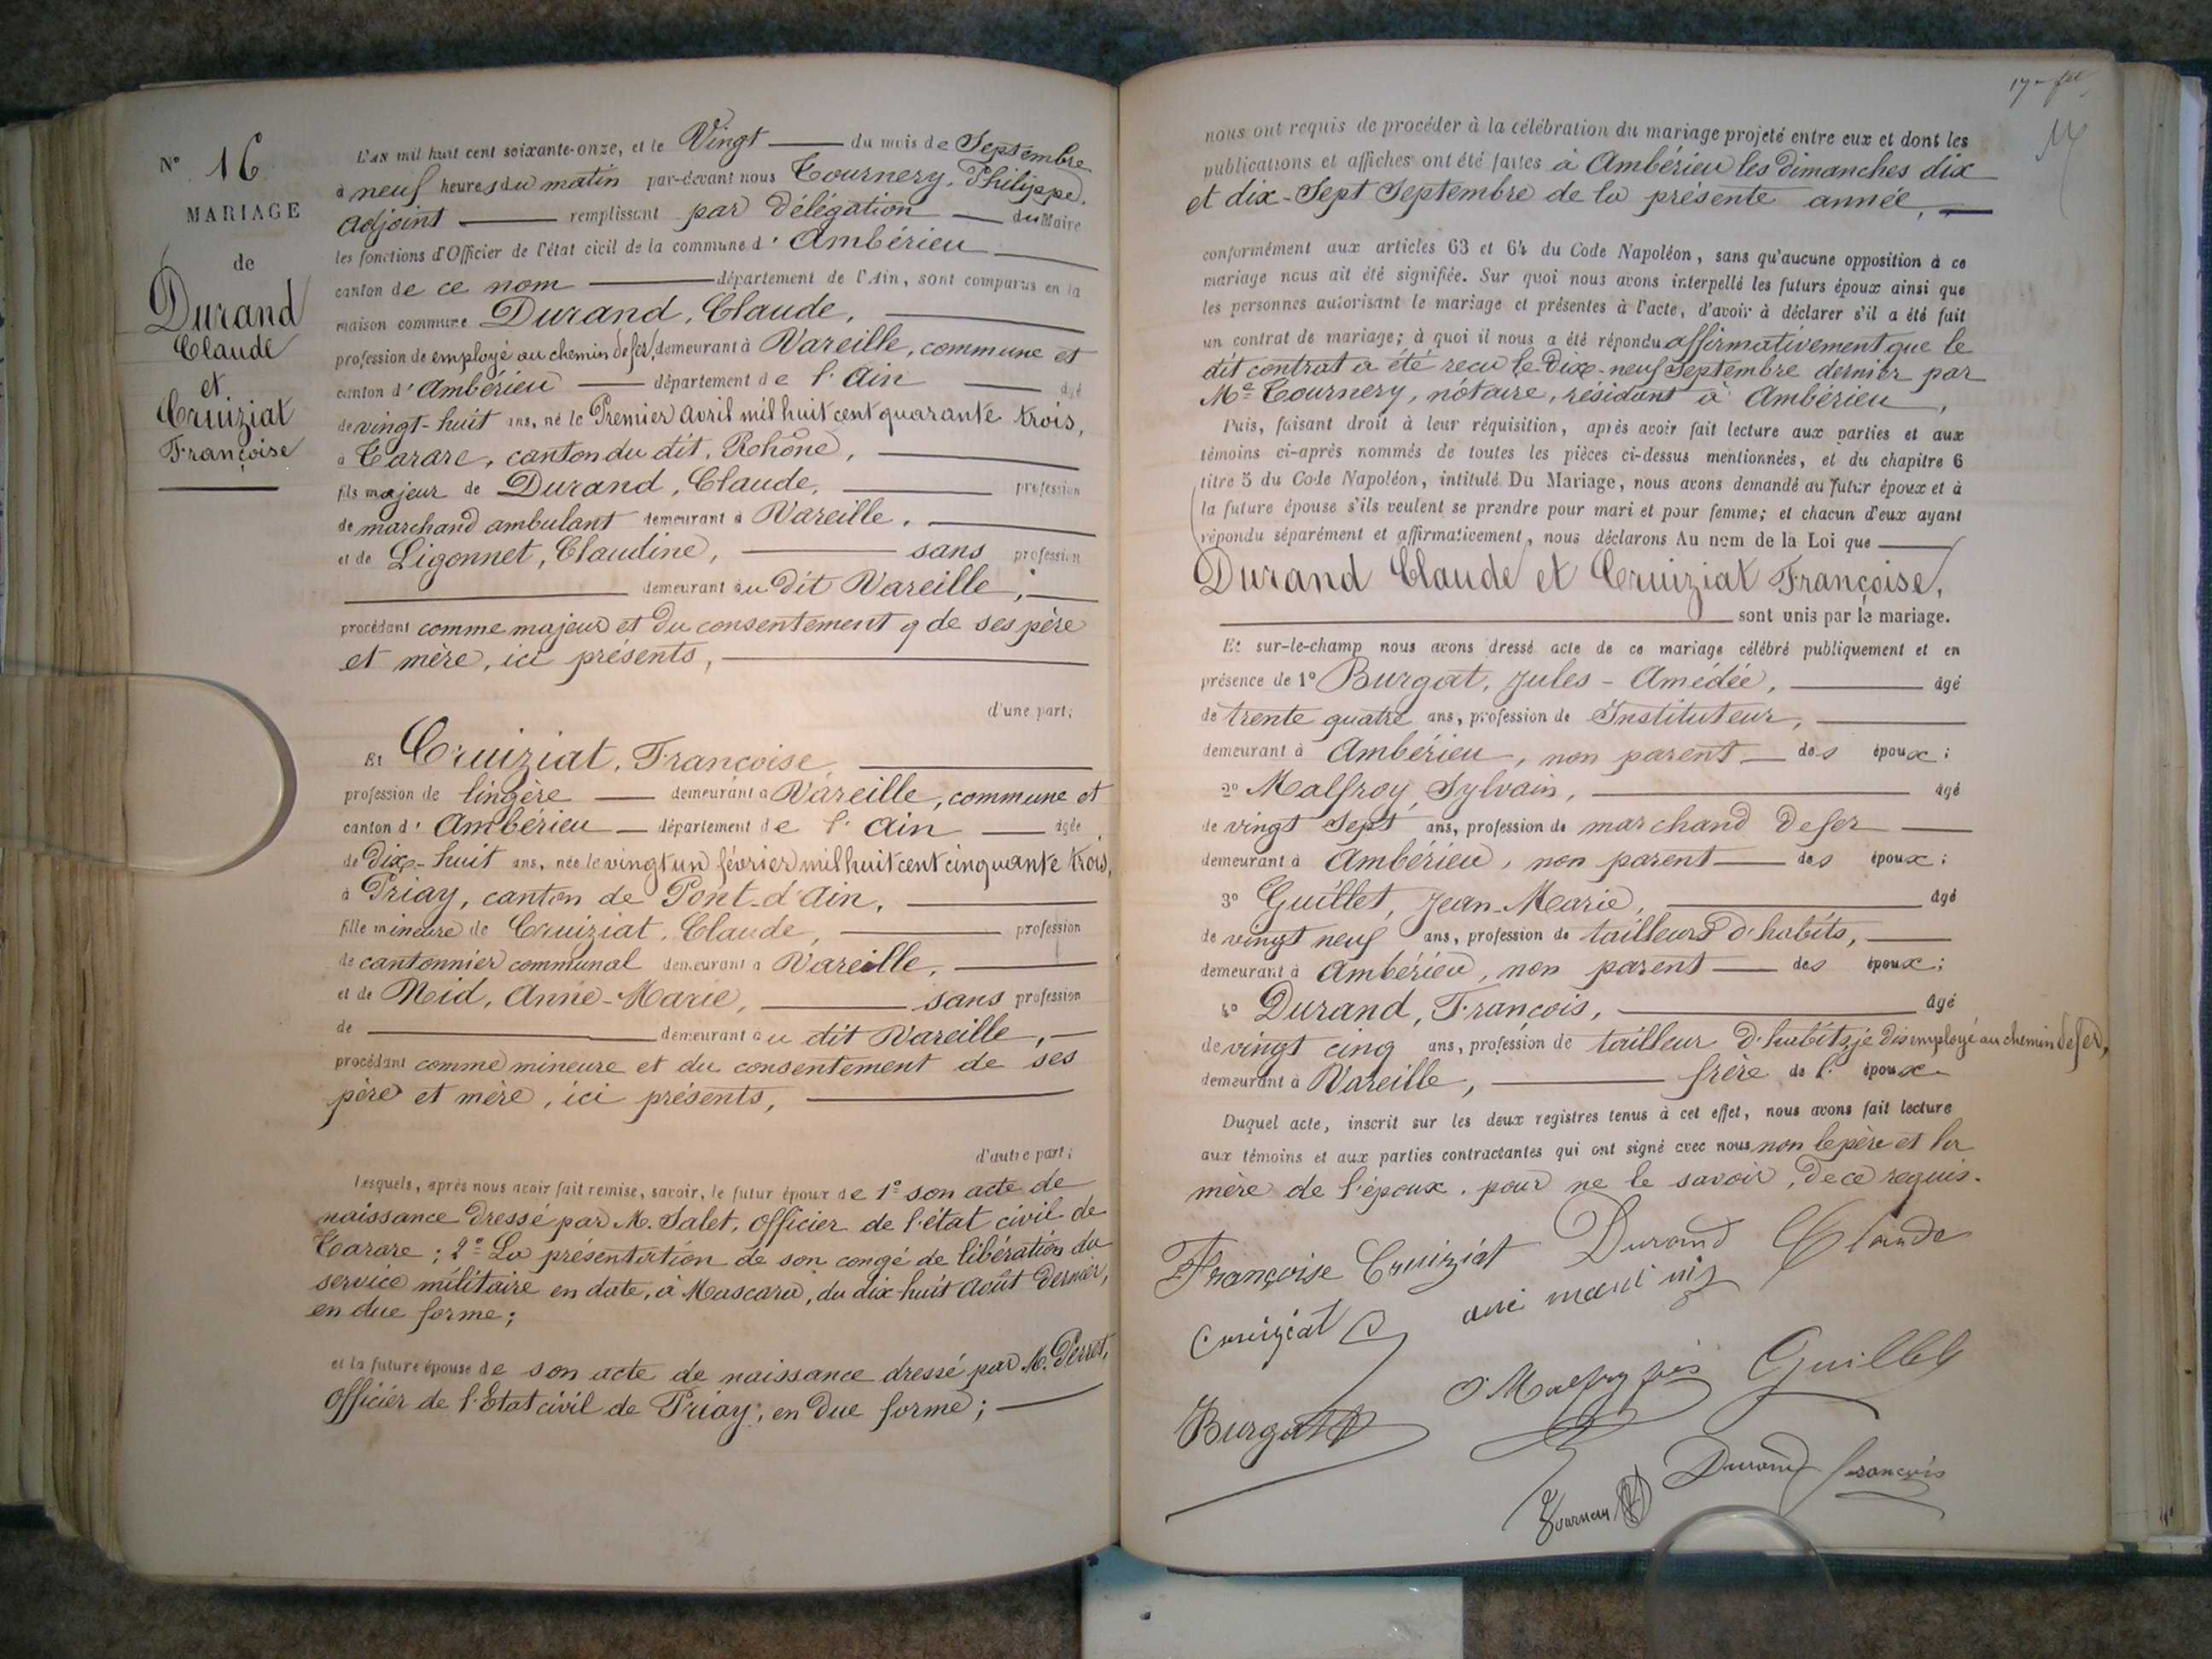 N° 16
MARIAGE
de
Durand
Claude
et
Cruiziat
Françoise
L'an mil huit cent soixante-onze, et le Vingt du mois de Septembre
à neuf heures du matin par-devant nous Tournery, Philippe,
adjoint remplissant par délégation du Maire
les fonctions d'Officier de l'état civil de la commune d'Ambérieu
canton de ce nom département de l'Ain, sont comparus en la
maison commune Durand, Claude,
profession de employé au chemin de fer, demeurant à Vareille, commune et
canton d'Ambérieu département de l'Ain âgé
de vingt-huit ans, né le Premier avril mil huit cent quarante trois,
à Tarare, canton du dit, Rohône,
fils majeur de Durand, Claude, profession
de marchand ambulant demeurant à Vareille,
et de Ligonnet, Claudine, sans profession
demeurant au dit Vareille,
procédant comme majeur et du consentement q de ses père
et mère, ici présents,
d'une part;
Et Cruiziat, Françoise
profession de lingère demeurant à Vareille, commune et
canton d'Ambérieu département de l'Ain âgée
de Dix-huit ans, née le vingt un février mil huit cent cinquante trois,
à Priay, canton de Pont-d'Ain,
fille mineure de Cruiziat, Claude, profession
de cantonnier communal demeurant à Vareille,
et de Nid, Anne-Marie, sans profession
de demeurant au dit Vareille,
procédant comme mineure et du consentement de ses
père et mère, ici présents,
d'autre part;
Lesquels, après nous avoir fait remise, savoir, le futur époux de 1° son acte de
naissance dressé par M. Salet, Officier de l'état civil de
Tarare; 2° La présentation de son congé de libération du
service militaire en date, à Mascara, du dix-huit Août dernier,
en due forme;
et la future épouse de son acte de naissance dressé par M. Perret,
Officier de l'Etat civil de Priay, en due forme;
17
nous ont requis de procéder à la célébration du mariage projeté entre eux et dont les
publications et affiches ont été faites à Ambérieu les dimanches dix
et dix-Sept Septembre de la présente année,
conformément aux articles 63 et 64 du Code Napoléon, sans qu'aucune opposition à ce
mariage nous ait été signifiée. Sur quoi nous avons interpellé les futurs époux ainsi que
les personnes autorisant le mariage et présentes à l'acte, d'avoir à déclarer s'il a été fait
un contrat de mariage; à quoi il nous a été répondu affirmativement que le
dit contrat a été reçu le Dix-neuf Septembre dernier par
Me Tournery, notaire, résidant à Ambérieu,
Puis, faisant droit à leur réquisition, après avoir fait lecture aux parties et aux
témoins ci-après nommés de toutes les pièces ci-dessus mentionnées, et du chapitre 6
titre 5 du Code Napoléon, intitulé Du Mariage, nous avons demandé au futur époux et à
la future épouse s'ils veulent se prendre pour mari et pour femme; et chacun d'eux ayant
répondu séparément et affirmativement, nous déclarons Au nom de la Loi que
Durand Claude et Cruiziat Françoise,
sont unis par le mariage.
Et sur-le-champ nous avons dressé acte de ce mariage célébré publiquement et en
présence de 1° Burgat, Jules-Amédée, âgé
de trente quatre ans, profession de Instituteur,
demeurant à Ambérieu, non parent des époux;
2° Malfroy, Sylvain, âgé
de vingt Sept ans, profession de marchand de fer
demeurant à Ambérieu, non parent des époux;
3° Guillet, Jean-Marie, âgé
de vingt neuf ans, profession de tailleurs d'habits,
demeurant à Ambérieu, non parent des époux;
4° Durand, François, âgé
de vingt cinq ans, profession de tailleur d'habits, je dis employé au chemin de fer,
demeurant à Vareille, frère de l'époux
Duquel acte, inscrit sur les deux registres tenus à cet effet, nous avons fait lecture
aux témoins et aux parties contractantes qui ont signé avec nous non le père et la
mère de l'époux, pour ne le savoir, de ce requis.
Françoise Cruiziat Durand Claude
Cruiziat
Malfroy Guillet
Burgat
Durand françois
Tournery